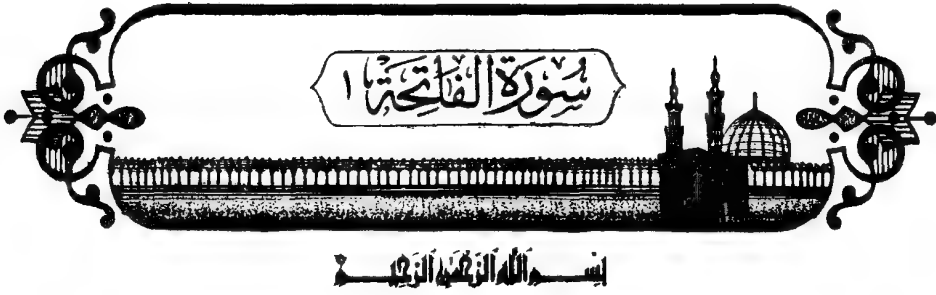 سُورَةُ الفَاتِحَة ١
بِسْمِ اللَّهِ الرَّحْمَٰنِ الرَّحِيمِ